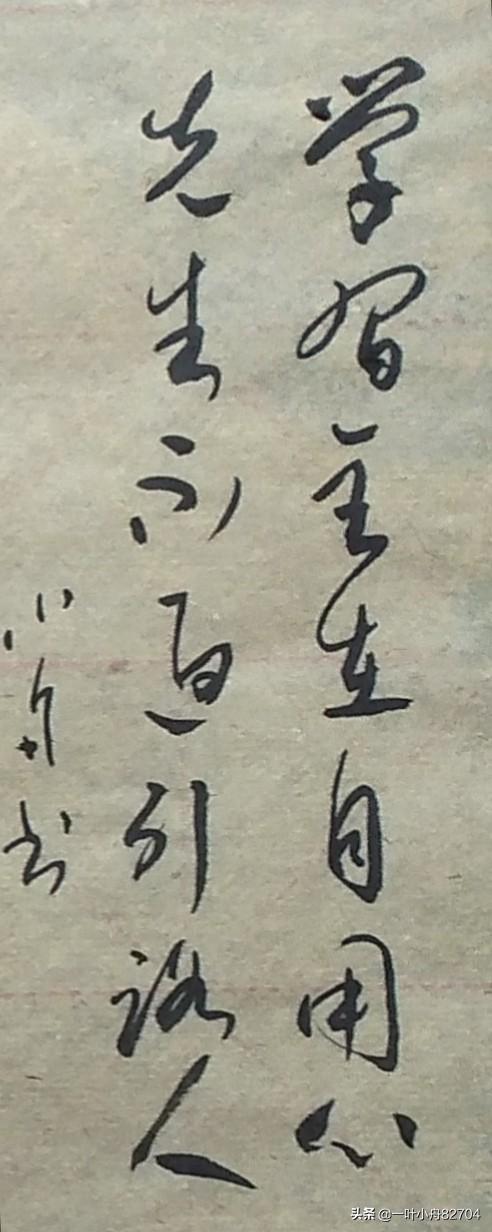 学习主在自用心
先生不过引路人
小舟书
头条 @一叶小舟82704